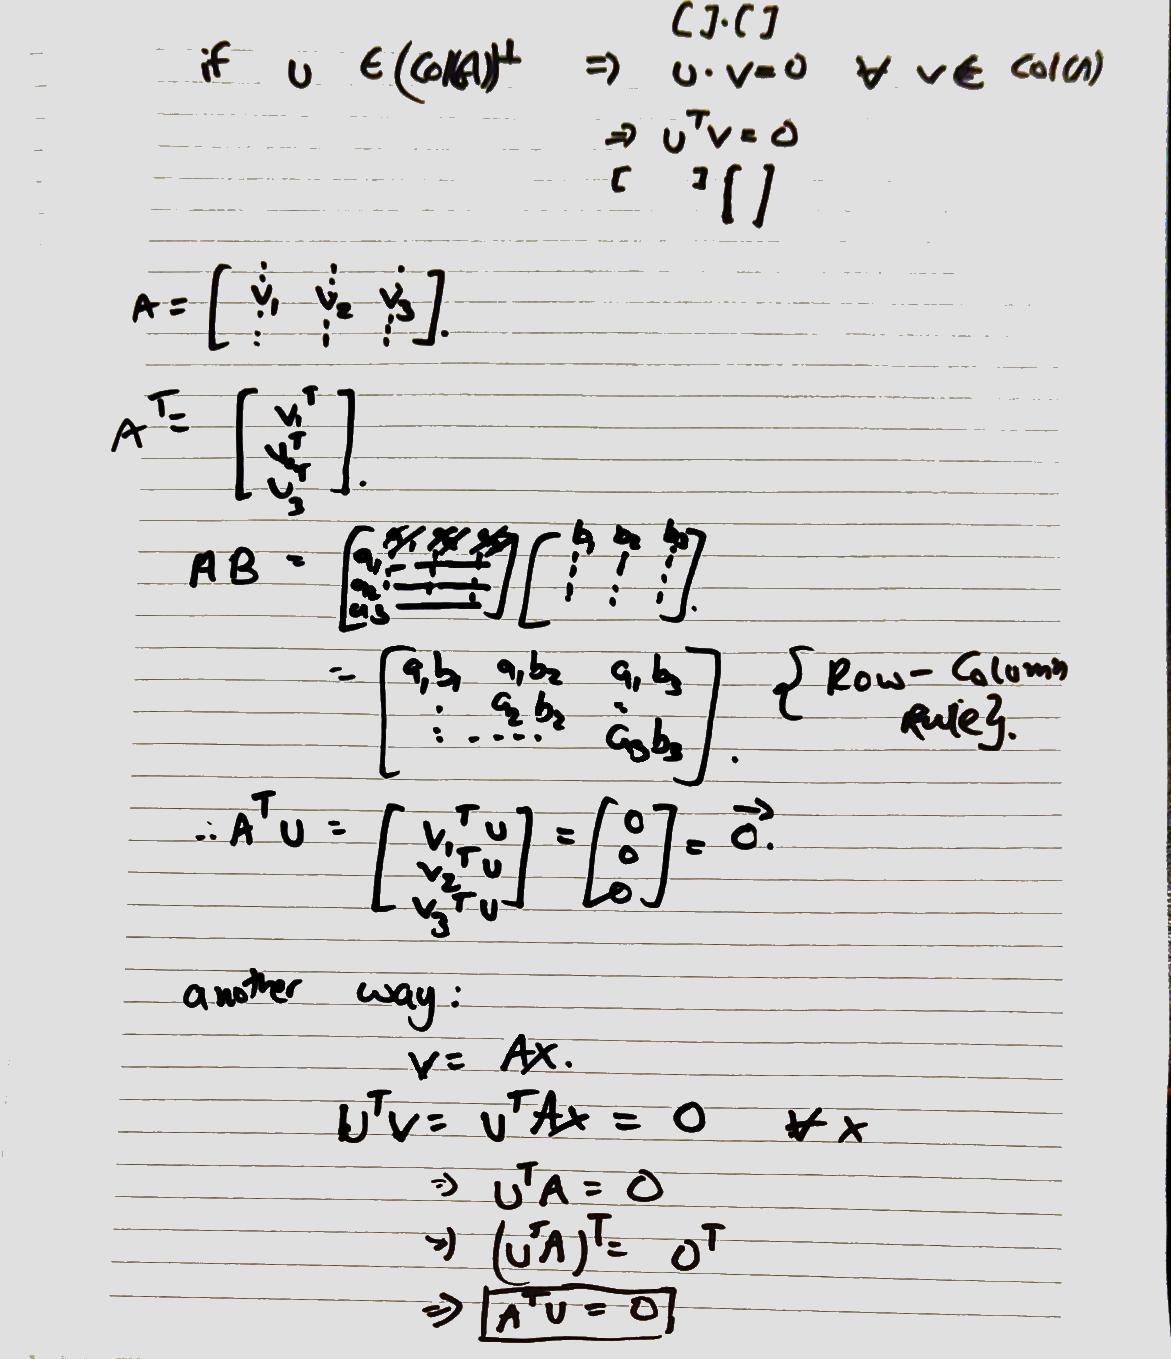 [ ] . [ ]
if u ∈ (Col(A))⊥ ⇒ u · v = 0 ∀ v ∈ Col(A)
⇒ uᵀv = 0
[ ] [ ]
A = [ v₁ v₂ v₃ ].
Aᵀ = [ v₁ᵀ
v₂ᵀ
v₃ᵀ ].
AB = [ a₁
a₂
a₃ ] [ b₁ b₂ b₃ ].
= [ a₁b₁ a₁b₂ a₁b₃
⋮ a₂b₂ ⋮
⋮ . . . . . a₃b₃ ].
{ Row - Column
Rule }.
∴ Aᵀu = [ v₁ᵀu
v₂ᵀu
v₃ᵀu ] = [ 0
0
0 ] = 0⃗.
another way:
v = Ax.
uᵀv = uᵀAx = 0 ∀ x
⇒ uᵀA = 0
⇒ (uᵀA)ᵀ = 0ᵀ
⇒ Aᵀu = 0